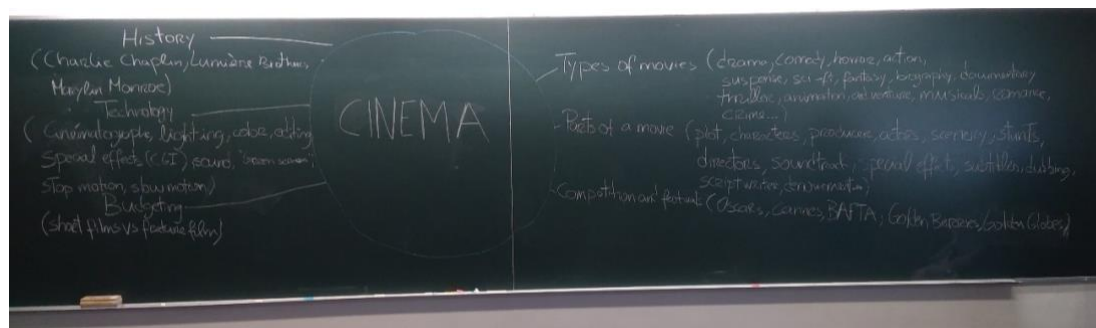 History
(Charlie Chaplin, Lumière Brothers,
Marylin Monroe)
Technology
(Cinématographe, lighting, color, editing
Special effects (CGI), sound,
stop motion, slow motion)
Budgeting
(short films vs feature film)
CINEMA
Types of movies (drama, comedy, horror, action,
suspense, sci-fi, fantasy, biography, documentary
thriller, animation, adventure, musicals, romance,
crime...)
Parts of a movie (plot, characters, producer, actors, scenery, stunts,
directors, soundtrack, special effects, subtitles, dubbing,
scriptwriter,
Competition and festival (Oscars, Cannes, BAFTA, Golden Globes)